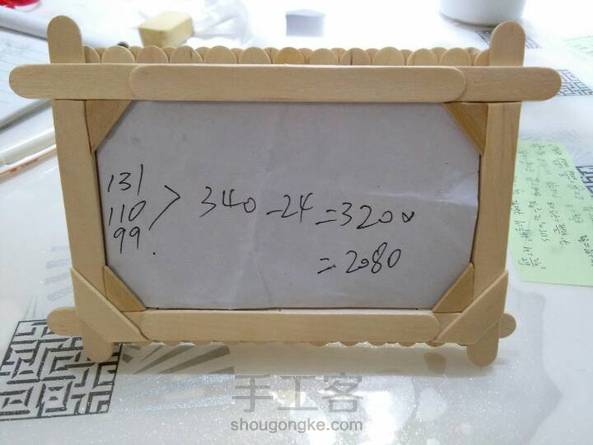 131
110 > 340-24=3200
99.
=2080
手工客
shougongke.com